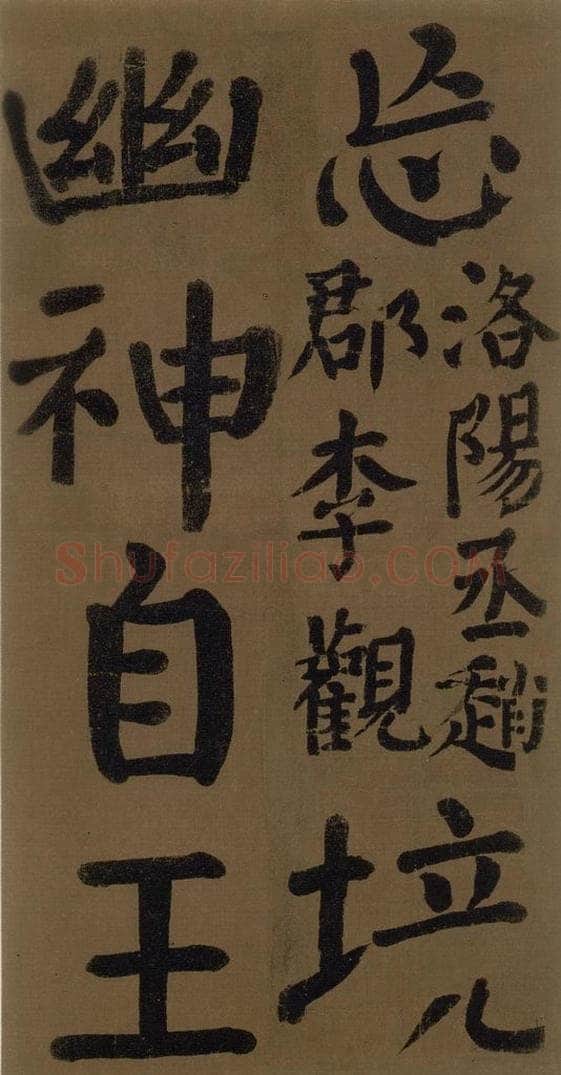 忘
洛陽丞趙
郡李觀
境
幽神自王
shufaziliao.com